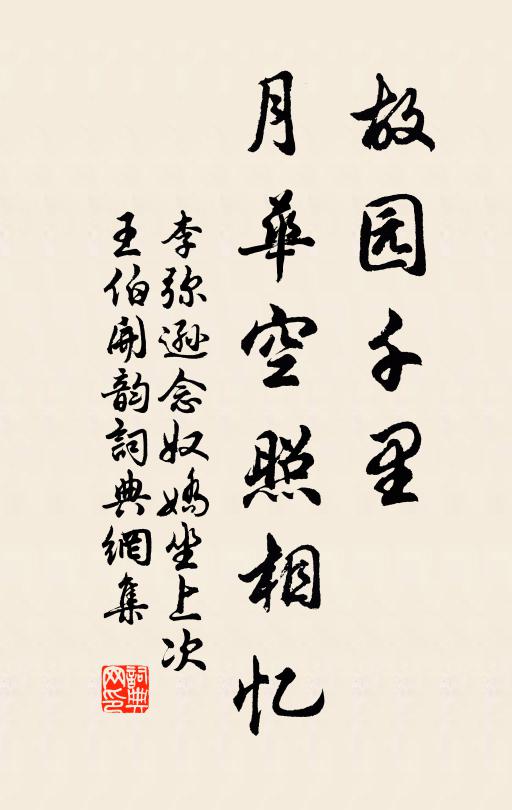 故园千里
月華空照相忆
李弥遜念奴嬌坐上次
王伯開韵詞典網集
詞典
网印